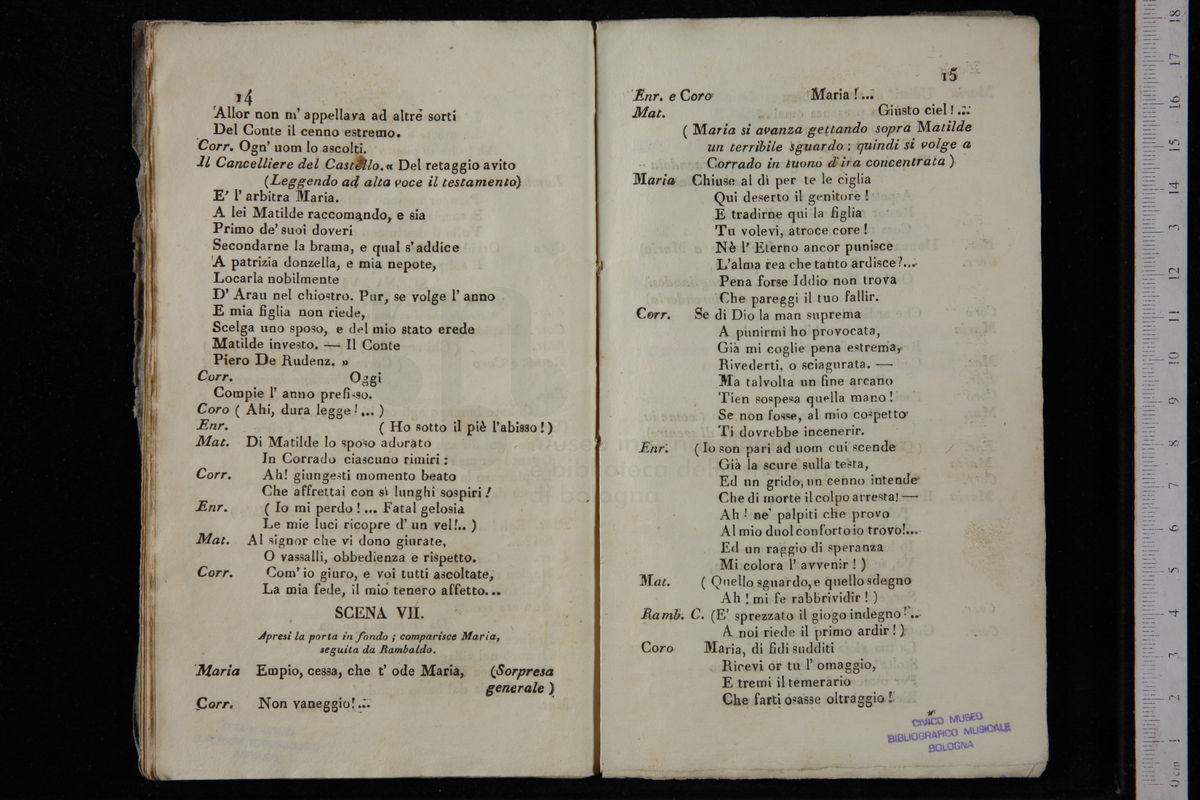 14
Allor non m' appellava ad altre sorti
Del Conte il cenno estremo.
Corr. Ogn' uom lo ascolti.
Il Cancelliere del Castello. « Del retaggio avito
(Leggendo ad alta voce il testamento)
E' l' arbitra Maria.
A lei Matilde raccomando, e sia
Primo de' suoi doveri
Secondarne la brama, e qual s' addice
A patrizia donzella, e mia nepote,
Locarla nobilmente
D' Arau nel chiostro. Pur, se volge l' anno
E mia figlia non riede,
Scelga uno sposo, e del mio stato erede
Matilde investo. — Il Conte
Piero De Rudenz. »
Corr. Oggi
Compie l' anno prefisso.
Coro ( Ahi, dura legge!... )
Enr. ( Ho sotto il piè l'abisso!)
Mat. Di Matilde lo sposo adorato
In Corrado ciascuno rimiri :
Corr. Ah! giungesti momento beato
Che affrettai con sì lunghi sospiri!
Enr. ( Io mi perdo!... Fatal gelosia
Le mie luci ricopre d' un vel!.. )
Mat. Al signor che vi dono giurate,
O vassalli, obbedienza e rispetto.
Corr. Com' io giuro, e voi tutti ascoltate,
La mia fede, il mio tenero affetto...
SCENA VII.
Apresi la porta in fondo ; comparisce Maria,
seguita da Rambaldo.
Maria Empio, cessa, che t' ode Maria, (Sorpresa
generale )
Corr. Non vaneggio!...
15
Enr. e Coro Maria !...
Mat. Giusto ciel!...
( Maria si avanza gettando sopra Matilde
un terribile sguardo : quindi si volge a
Corrado in tuono d'ira concentrata )
Maria Chiuse al dì per te le ciglia
Qui deserto il genitore !
E tradirne qui la figlia
Tu volevi, atroce core !
Nè l' Eterno ancor punisce
L'alma rea che tanto ardisce?...
Pena forse Iddio non trova
Che pareggi il tuo fallir.
Corr. Se di Dio la man suprema
A punirmi ho provocata,
Già mi coglie pena estrema,
Rivederti, o sciagurata. —
Ma talvolta un fine arcano
Tien sospesa quella mano!
Se non fosse, al mio cospetto
Ti dovrebbe incenerir.
Enr. (Io son pari ad uom cui scende
Già la scure sulla testa,
Ed un grido, un cenno intende
Che di morte il colpo arresta! —
Ah ! ne' palpiti che provo
Al mio duol conforto io trovo!...
Ed un raggio di speranza
Mi colora l' avvenir ! )
Mat. ( Quello sguardo, e quello sdegno
Ah ! mi fe rabbrividir ! )
Ramb. C. (E' sprezzato il giogo indegno!...
A noi riede il primo ardir ! )
Coro Maria, di fidi sudditi
Ricevi or tu l' omaggio,
E tremi il temerario
Che farti osasse oltraggio !
CIVICO MUSEO
BIBLIOGRAFICO MUSICALE
BOLOGNA
museo in
biblioteca de
di bologna
0 cm 1 2 3 4 5 6 7 8 9 10 11 12 13 14 15 16 17 18